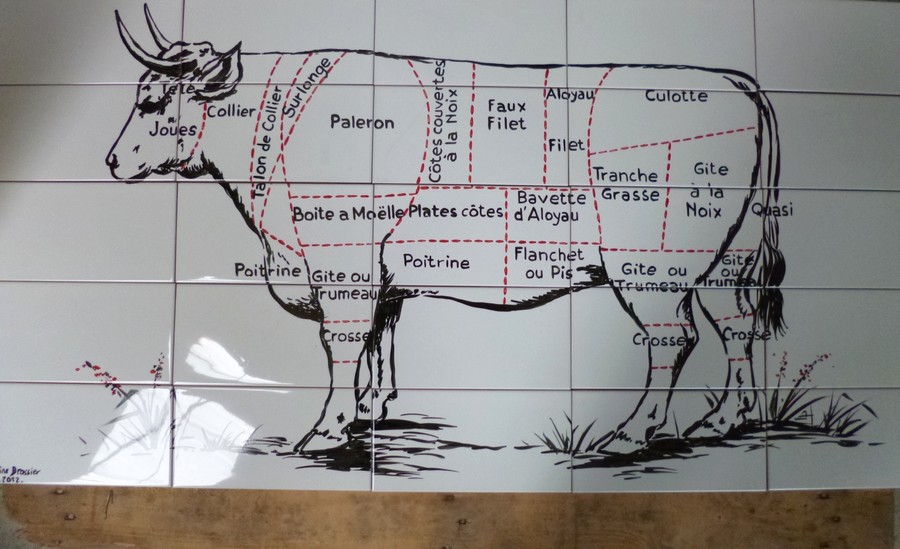 Tête
Joues
Collier
Talon de Collier
Surlonge
Paleron
Côtes couvertes
à la Noix
Faux
Filet
Aloyau
Filet
Culotte
Tranche
Grasse
Gite
à la
Noix
Quasi
Boite a Moëlle
Plates côtes
Bavette
d'Aloyau
Poitrine
Gite ou
Trumeau
Crosse
Poitrine
Flanchet
ou Pis
Gite ou
Trumeau
Crosse
Gite
ou
Trumeau
Crosse
Drossier
2012.